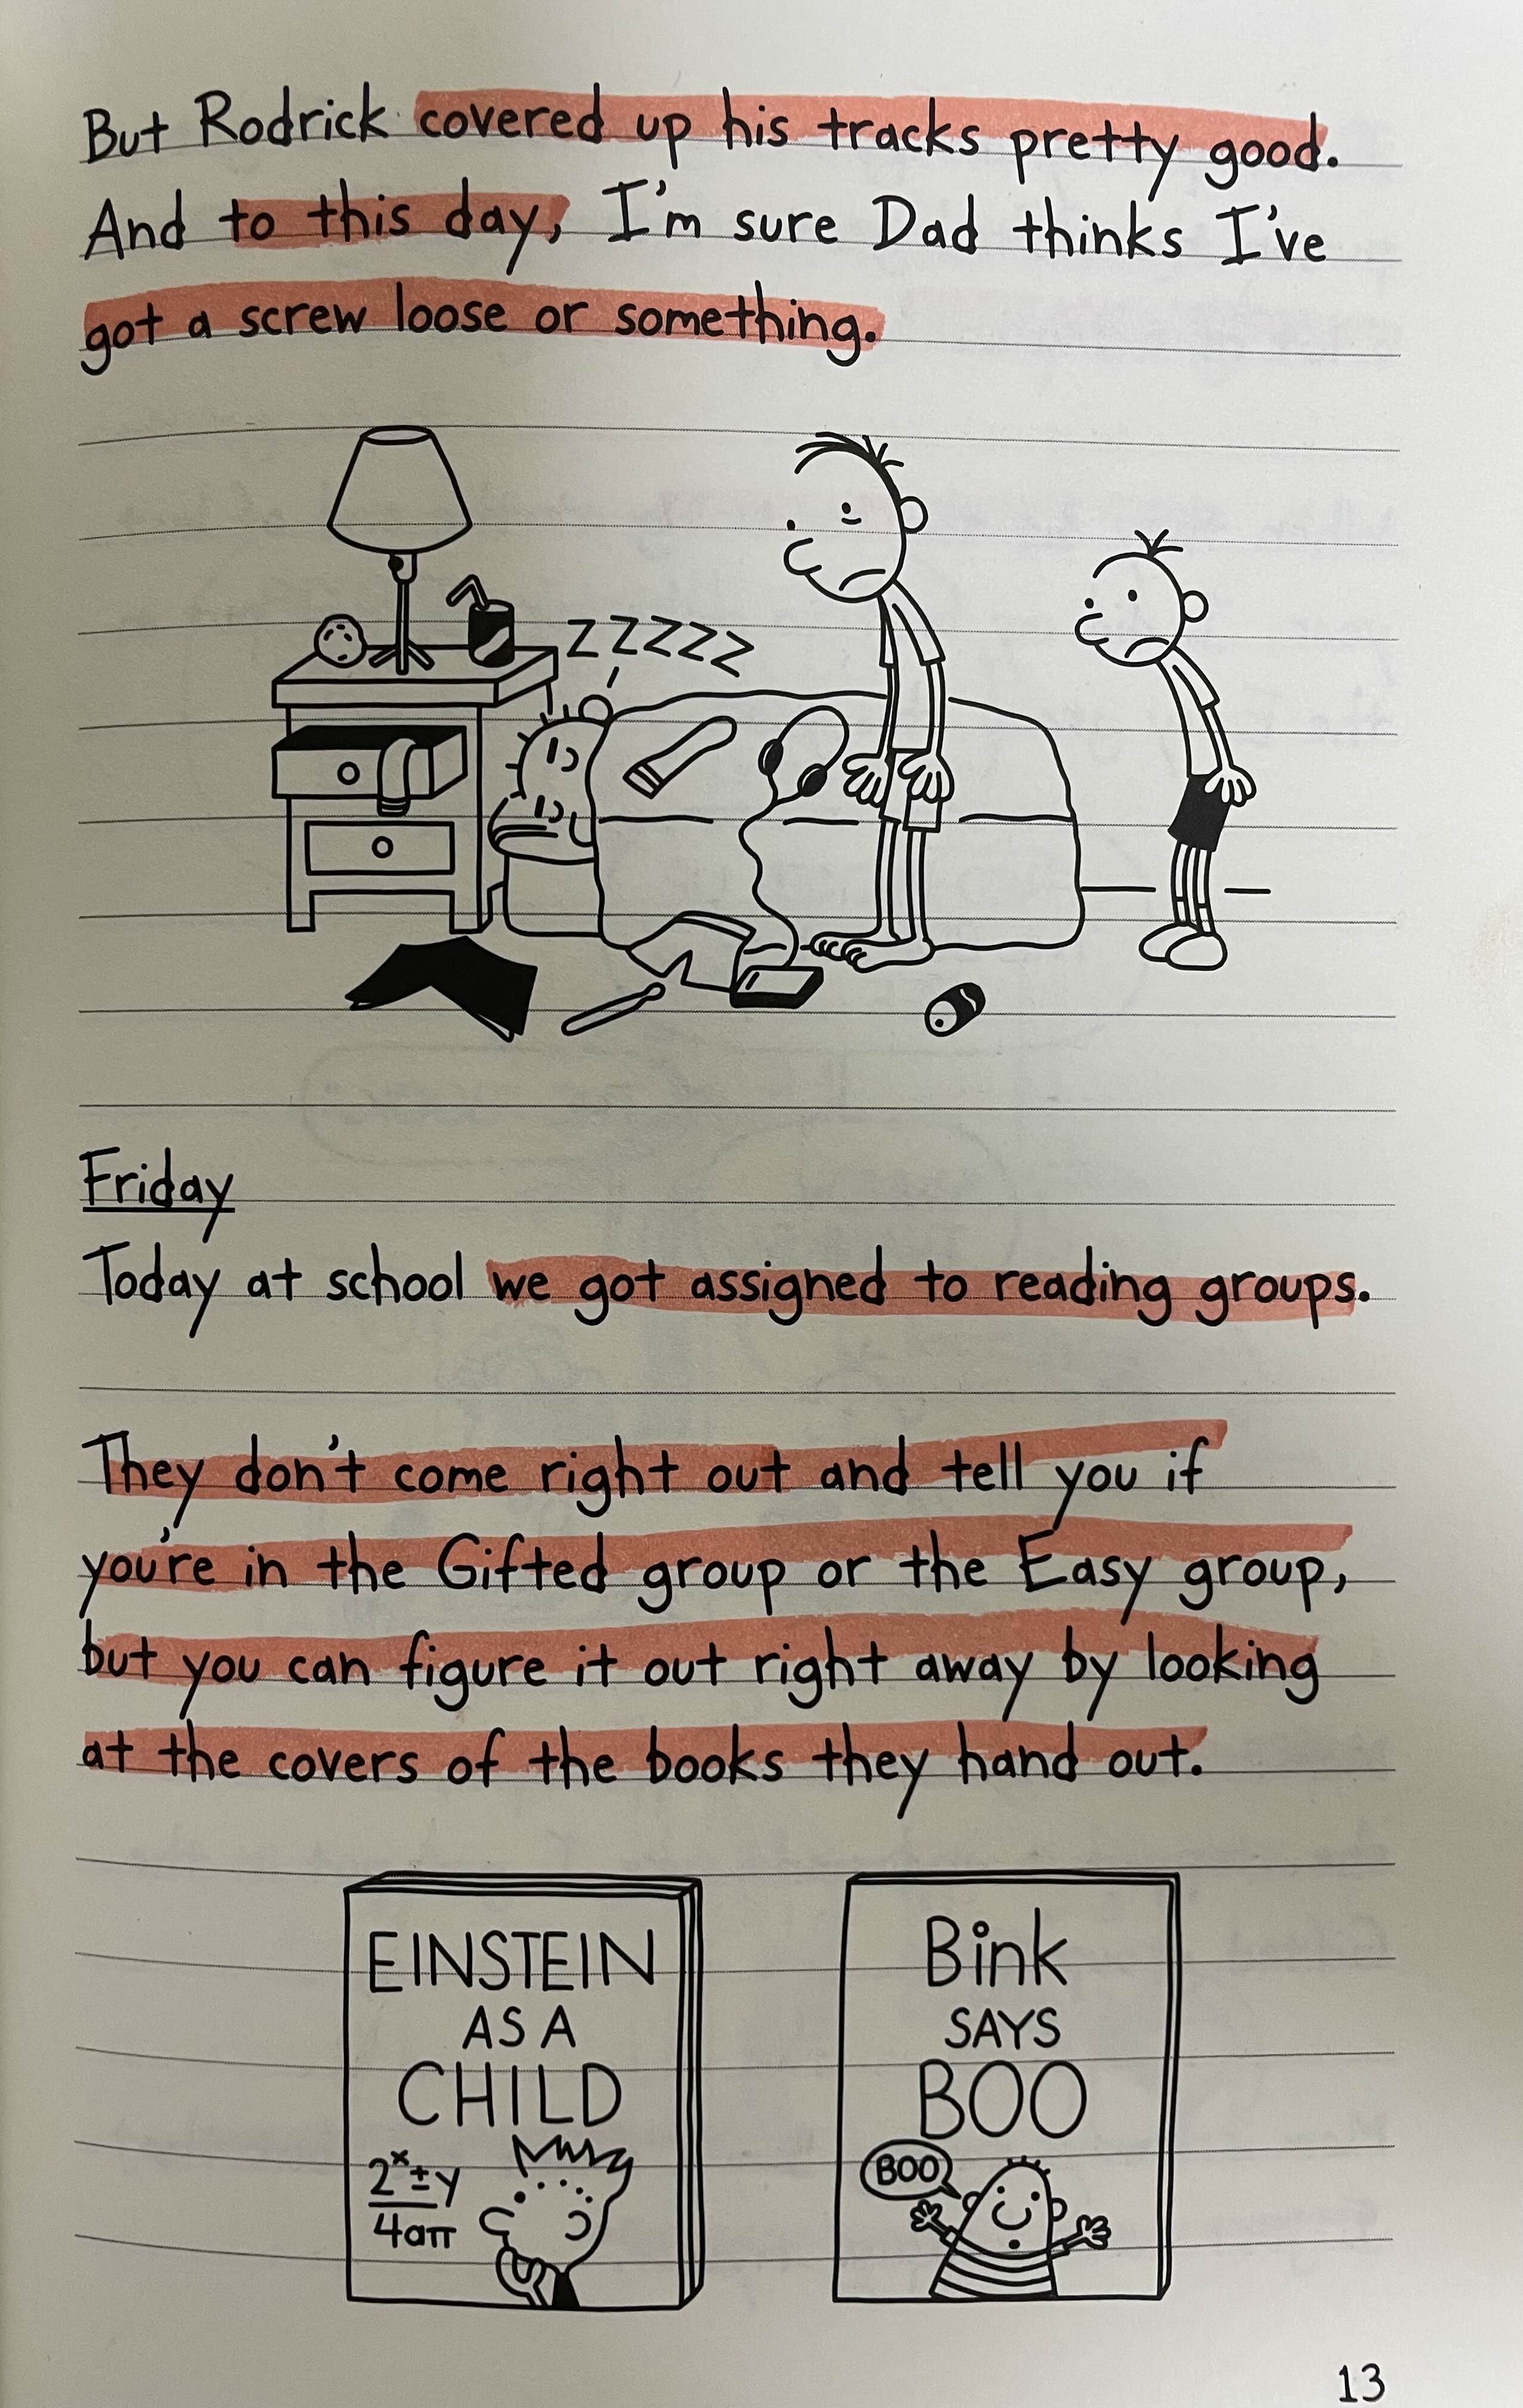 But Rodrick covered up his tracks pretty good.
And to this day, I'm sure Dad thinks I've
got a screw loose or something.
ZZZZZ
Friday
Today at school we got assigned to reading groups.
They don't come right out and tell you if
you're in the Gifted group or the Easy group,
but you can figure it out right away by looking
at the covers of the books they hand out.
EINSTEIN
AS A
CHILD
2ˣ±y
4aπ
Bink
SAYS
BOO
BOO
13